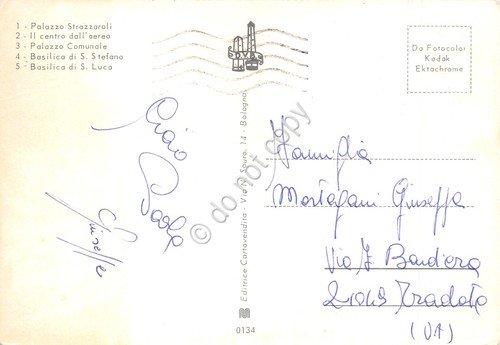 1 - Palazzo Strazzaroli
2 - Il centro dall'aereo
3 - Palazzo Comunale
4 - Basilica di S. Stefano
5 - Basilica di S. Luca
Ciao
Paola
Giuseppe
Editrice Cartovendita - Via N. Sauro, 14 - Bologna
0134
Da Fotocolor
Kodak
Ektachrome
Famiglia
Montafani Giuseppe
Via F. Bandiera
21049 Tradate
(VA)
© do not copy